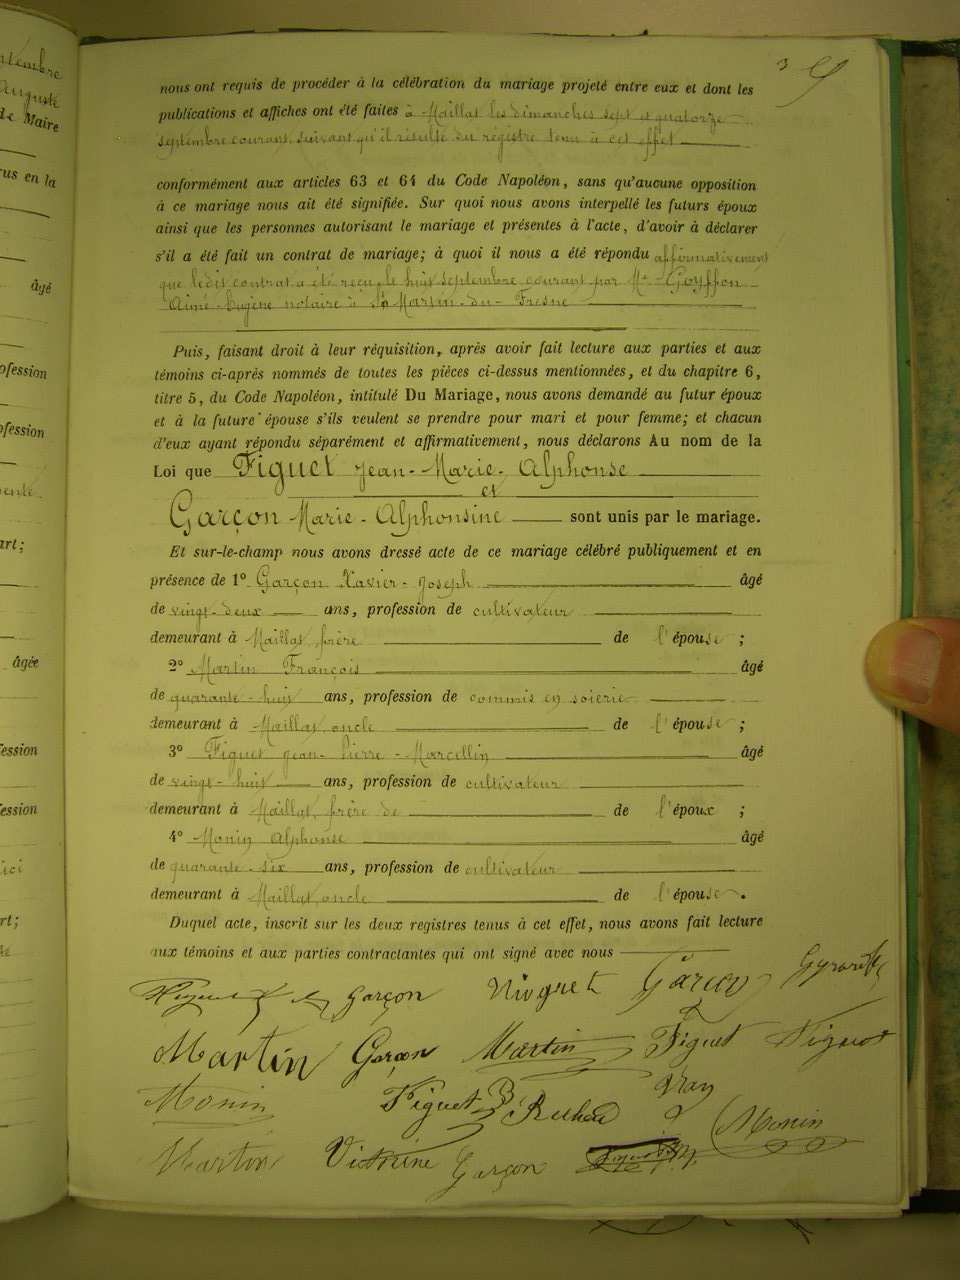 ntembre
Auguste
de Maire
rus en la
âgé
ofession
ofession
ente
art;
âgée
fession
fession
ici
rt;
3
nous ont requis de procéder à la célébration du mariage projeté entre eux et dont les
publications et affiches ont été faites à Maillat les dimanches sept et quatorze
septembre courant, suivant qu'il résulte du régistre tenu à cet effet
conformément aux articles 63 et 64 du Code Napoléon, sans qu'aucune opposition
à ce mariage nous ait été signifiée. Sur quoi nous avons interpellé les futurs époux
ainsi que les personnes autorisant le mariage et présentes à l'acte, d'avoir à déclarer
s'il a été fait un contrat de mariage; à quoi il nous a été répondu affirmativement
que ledit contrat a été reçu, le huit septembre courant par Me Goyffon
Aimé-Eugène notaire à St Martin-du-Fresne
Puis, faisant droit à leur réquisition, après avoir fait lecture aux parties et aux
témoins ci-après nommés de toutes les pièces ci-dessus mentionnées, et du chapitre 6,
titre 5, du Code Napoléon, intitulé Du Mariage, nous avons demandé au futur époux
et à la future épouse s'ils veulent se prendre pour mari et pour femme; et chacun
d'eux ayant répondu séparément et affirmativement, nous déclarons Au nom de la
Loi que Figuet Jean-Marie-Alphonse
et
Garçon Marie-Alphonsine sont unis par le mariage.
Et sur-le-champ nous avons dressé acte de ce mariage célébré publiquement et en
présence de 1° Garçon Xavier-Joseph âgé
de vingt-deux ans, profession de cultivateur
demeurant à Maillat, frère de l'épouse ;
2° Martin François âgé
de quarante-huit ans, profession de commis en soierie
demeurant à Maillat, oncle de l'épouse ;
3° Figuet Jean-Pierre-Marcellin âgé
de vingt-huit ans, profession de cultivateur
demeurant à Maillat, frère de de l'époux ;
4° Monin Alphonse âgé
de quarante-six ans, profession de cultivateur
demeurant à Maillat, oncle de l'épouse.
Duquel acte, inscrit sur les deux registres tenus à cet effet, nous avons fait lecture
aux témoins et aux parties contractantes qui ont signé avec nous
Garçon Garçon
Martin Garçon Martin Figuet
Monin Figuet
Monin
Martin Victorine Garçon